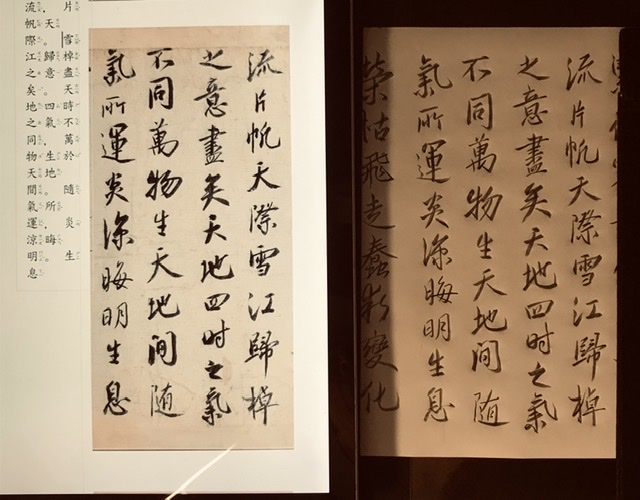 流，片
帆天
際。雪
江歸棹
之意盡
矣。天
地四時
之氣不
同，萬
物生於
天地
間。隨
氣所
運，炎
涼晦
明。生
息
流片帆天際雪江歸棹
之意盡矣天地四时之氣
不同萬物生天地间随
氣所運炎涼晦明生息
流片帆天際雪江歸棹
之意盡矣天地四时之氣
不同萬物生天地间随
氣所運炎涼晦明生息
榮枯飛走蠢動變化